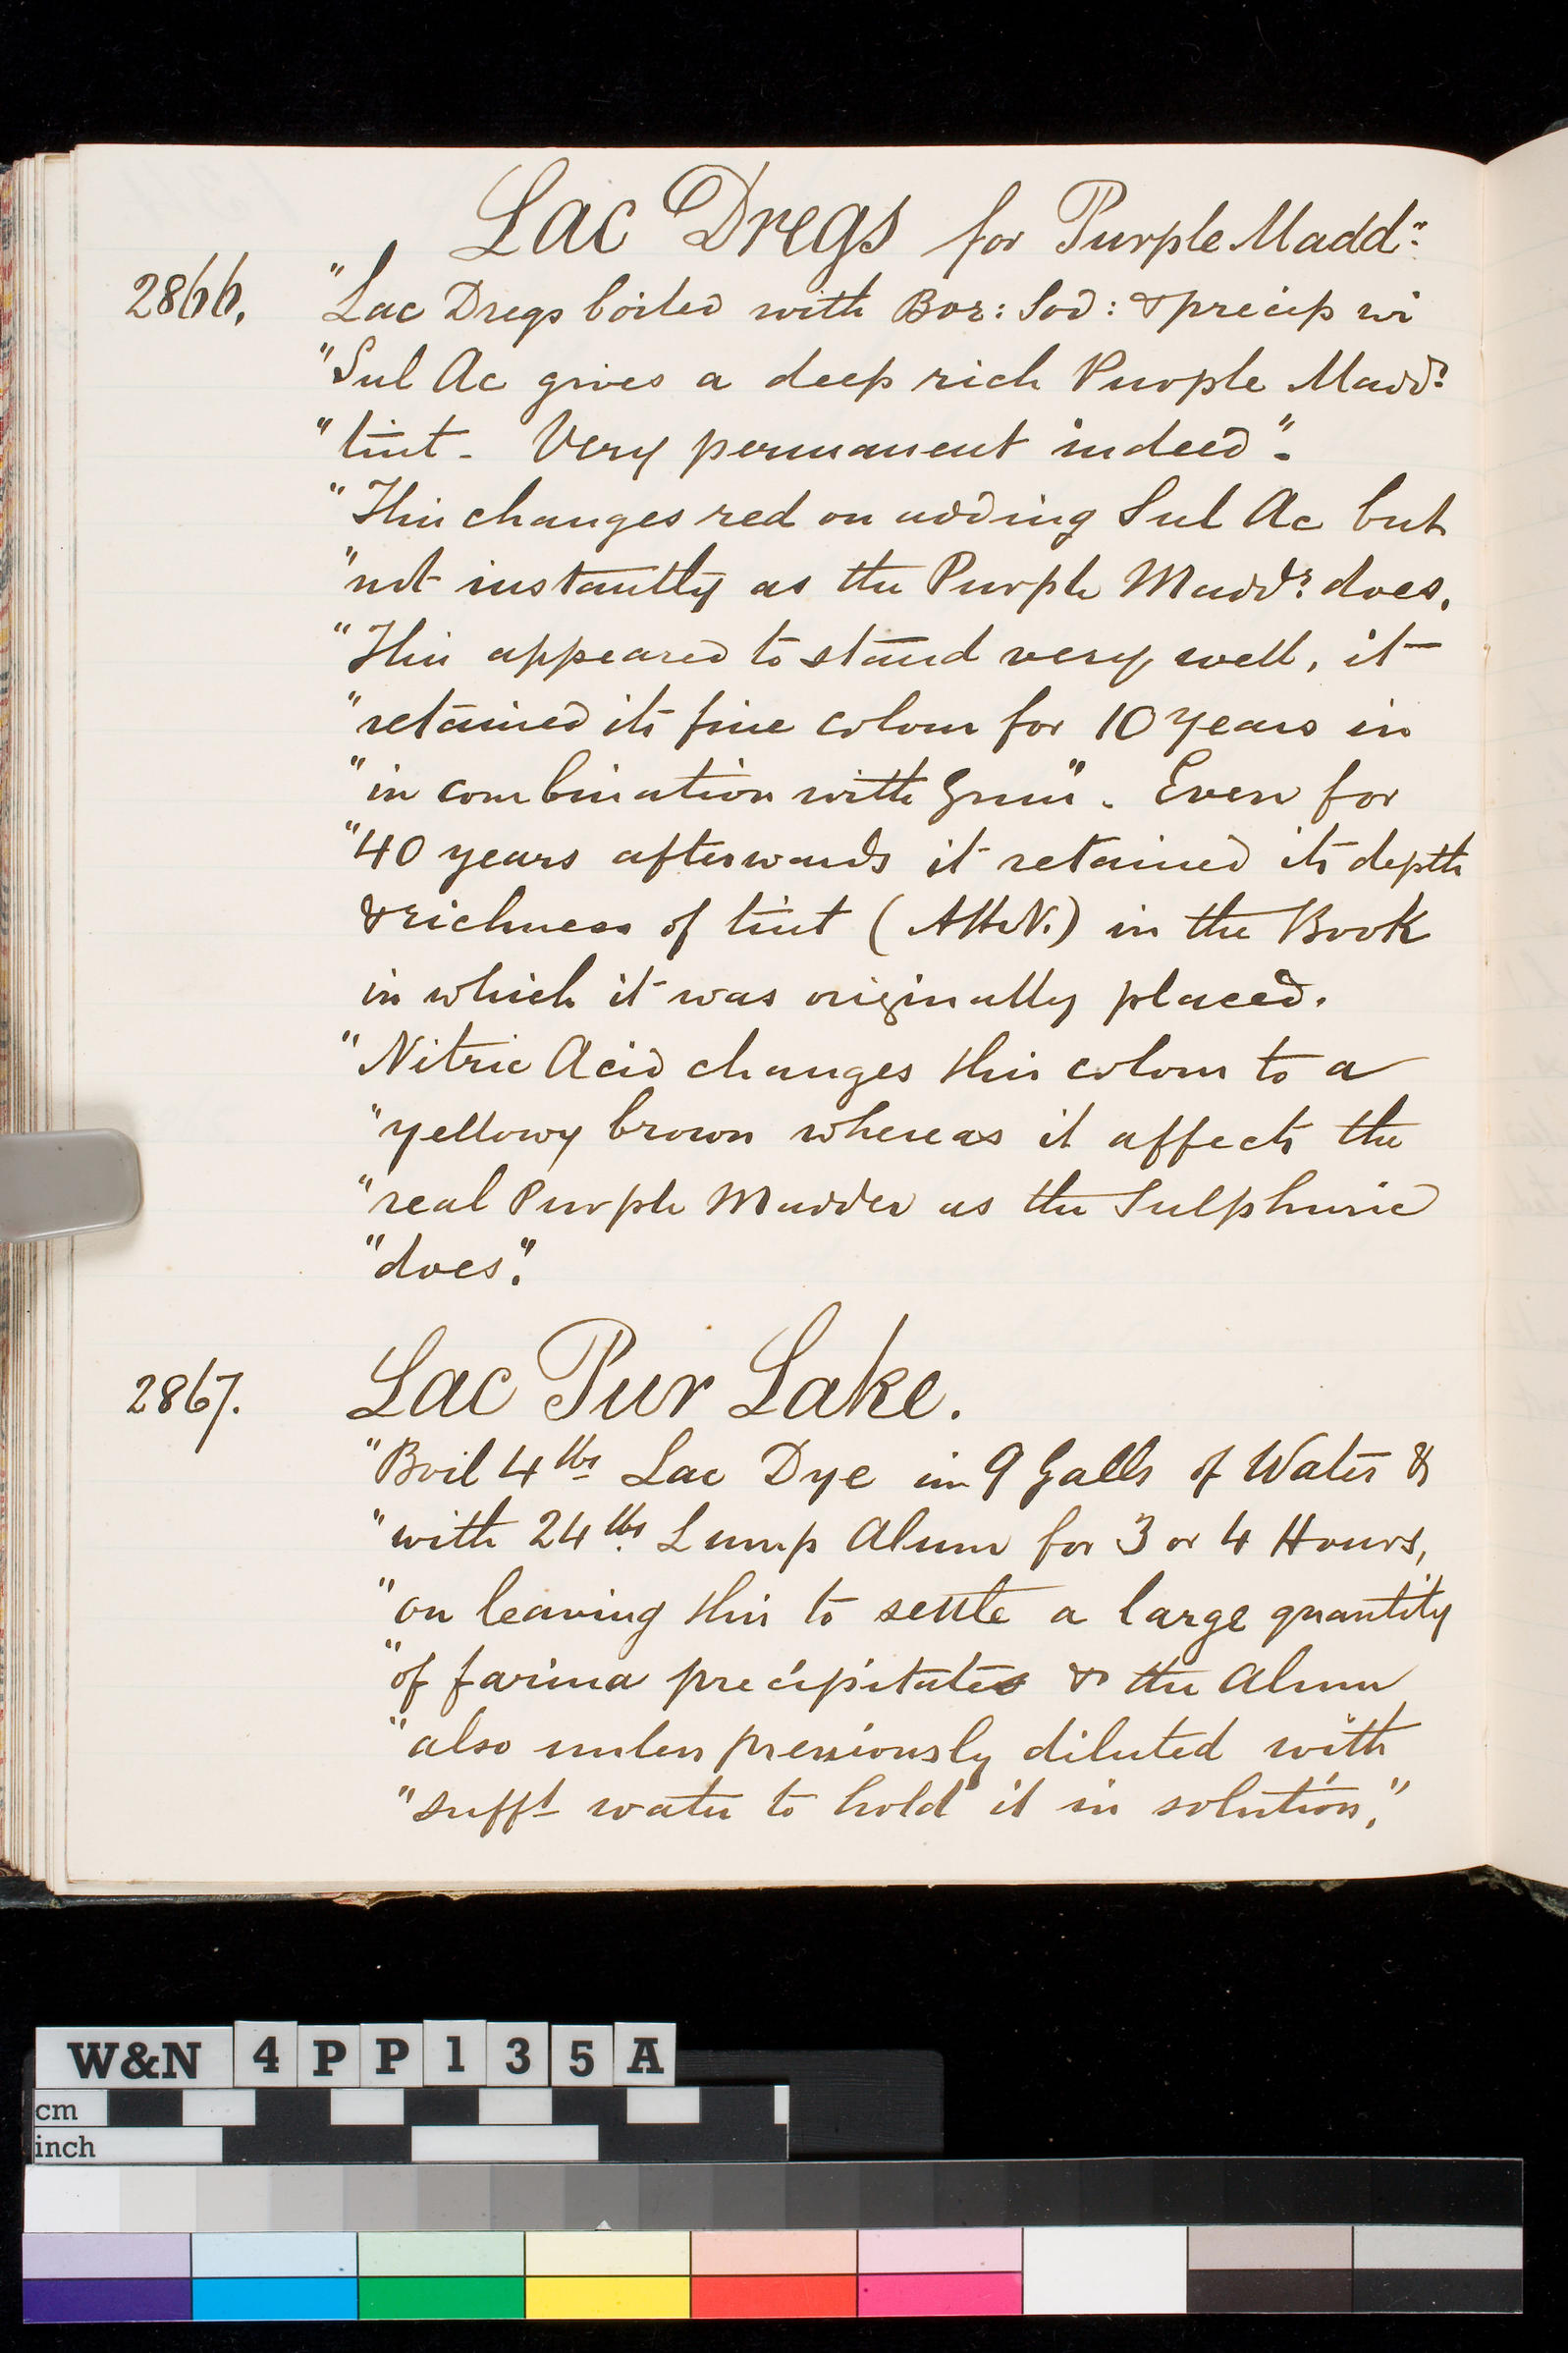 Lac Dregs for Purple Madd:
2866. "Lac Dregs boiled with Bor: Sod: & precip wi
"Sul Ac gives a deep rich Purple Madd:
"tint. Very permanent indeed".
"This changes red on adding Sul Ac but
"not instantly as the Purple Madd.r does.
"This appeared to stand very well, it
"retained its fine colour for 10 years in
"in combination with Gum". Even for
"40 years afterwards it retained its depth
& richness of tint (AHN.) in the Book
in which it was originally placed.
"Nitric Acid changes this colour to a
"yellowy brown whereas it affects the
"real Purple Madder as the Sulphuric
"does".
2867. Lac Pur Lake.
"Boil 4 lbs Lac Dye in 9 Galls of Water &
"with 24 lbs Lump Alum for 3 or 4 Hours,
"on leaving this to settle a large quantity
"of farina precipitates & the Alum
"also unless previously diluted with
"sufft water to hold it in solution,"
W&N 4PP135A
cm
inch